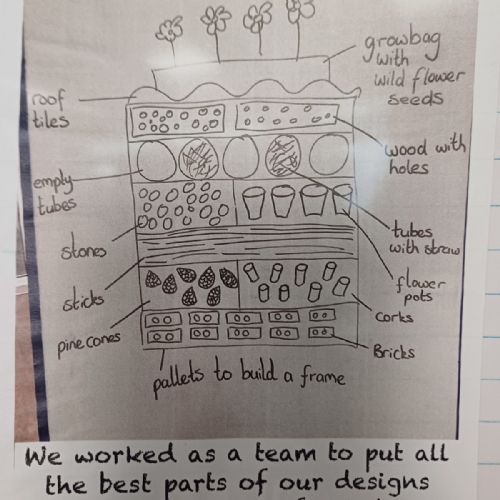 growbag
with
wild flower
seeds
roof
tiles
wood with
holes
empty
tubes
tubes
with straw
stones
flower
pots
sticks
corks
pine cones
Bricks
pallets to build a frame
We worked as a team to put all
the best parts of our designs